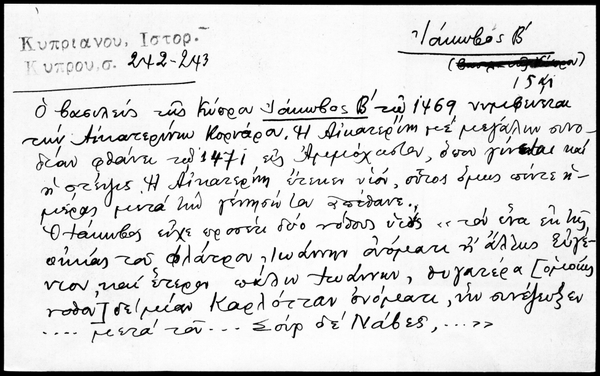 Κυπριανου, Ιστορ.
Κυπρου, σ. 242-243
Ἰάκωβος Β'
15 αἰ
Ὁ βασιλεὺς τῆς Κύπρου Ἰάκωβος Β' τῷ 1469 νυμφεύεται
τὴν Αἰκατερίνην Κορνάρο. Ἡ Αἰκατερίνη μὲ μεγάλην συνο-
δείαν φθάνει τῷ 1471 εἰς Ἀμμόχωστον, ὅπου γίνεται καὶ
ἡ στέψις. Ἡ Αἰκατερίνη ἔτεκεν υἱόν, οὗτος ὅμως πέντε ἡ-
μέρας μετὰ τὴν γέννησίν του ἀπέθανε.
Ὁ Ἰάκωβος εἶχε προσέτι δύο νόθους υἱοὺς «τὸν ἕνα ἐκ τῆς
οἰκίας τοῦ Φλάτρου, Ἰωάννην ὀνόματι ἢ ἄλλως Εὐγέ-
νιον, καὶ ἕτερον πάλιν Ἰωάννην, θυγατέρα [ὁμοίως
νόθα] δὲ μίαν Καρλότταν ὀνόματι, ἣν συνέζευξεν
.... μετὰ τοῦ ... Σοὺρ δὲ Νάβες, ...»